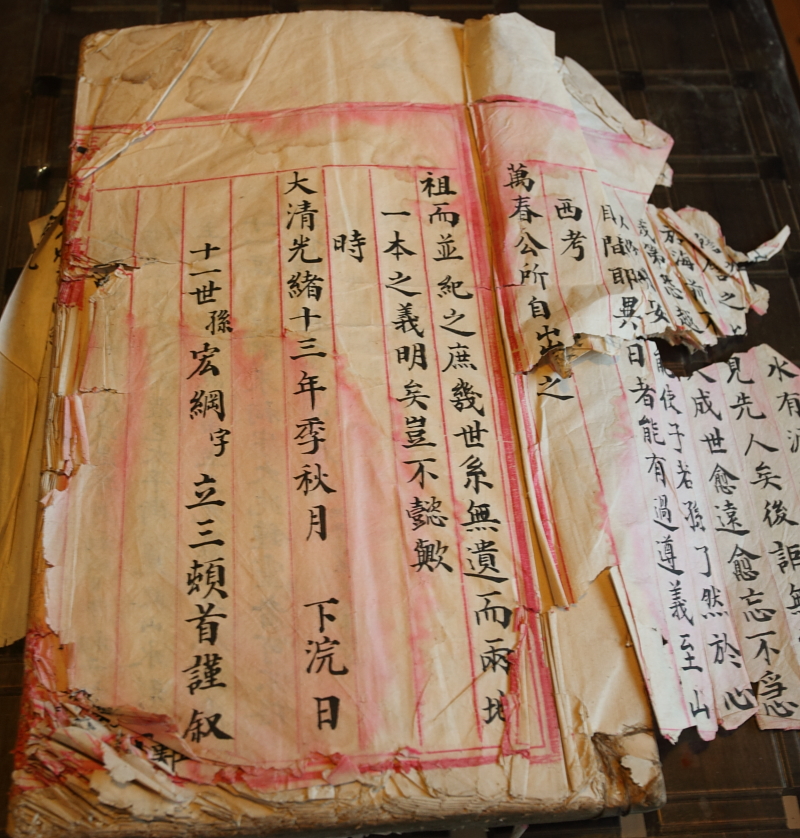 水有
見先人矣後詎無
成世愈遠愈忘不
使子者孫了然於心
目間耶異日者能有過遵義至山
西考
萬春公所自出之
祖而並紀之庶幾世系無遺而兩地
一本之義明矣豈不懿歟
時
大清光緒十三年季秋月 下浣日
十一世孫宏綱字立三頓首謹叙